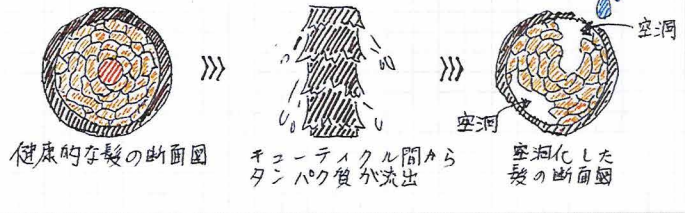 空洞
空洞
健康的な髪の断面図
キューティクル間から
タンパク質が流出
空洞化した
髪の断面図